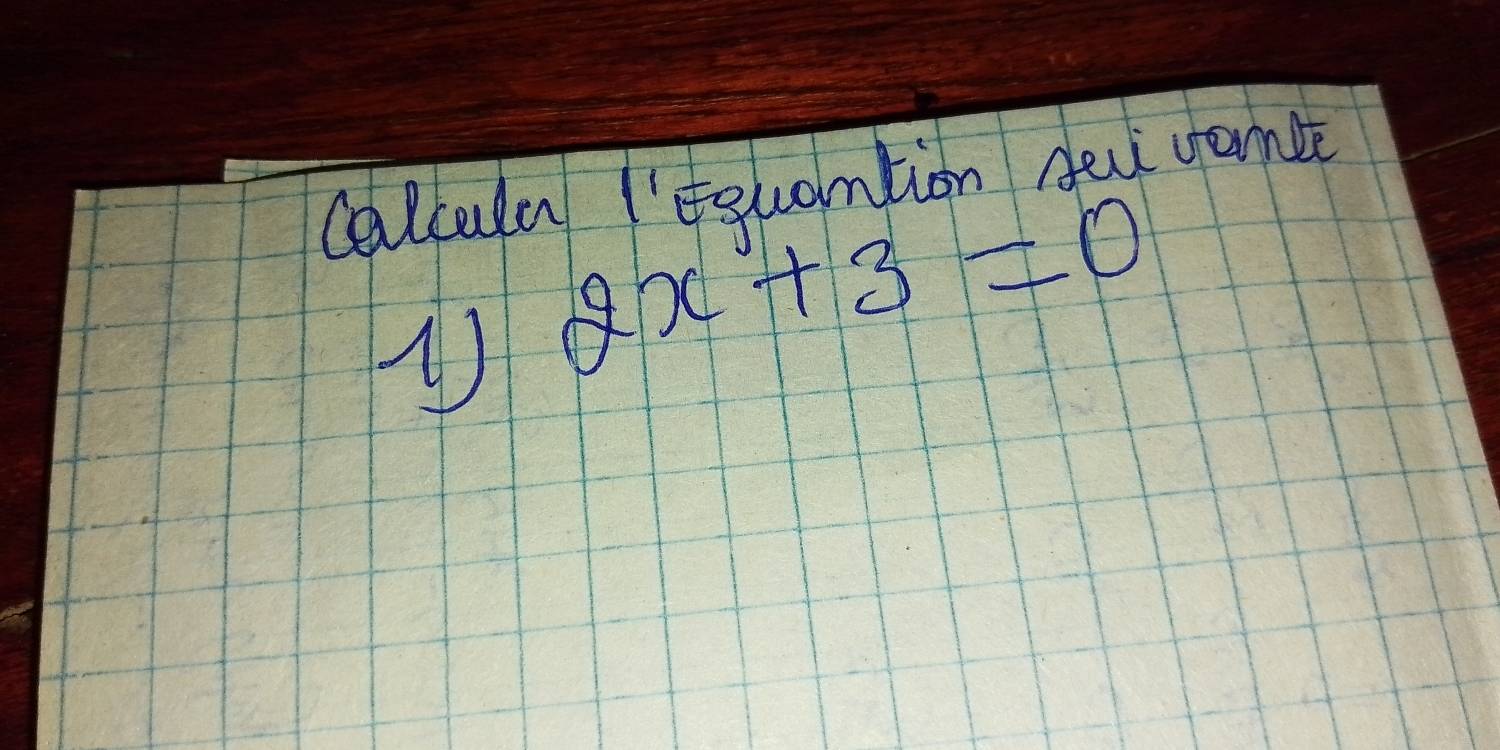 Calculer l'Equantion suivante
1) 2x + 3 = 0